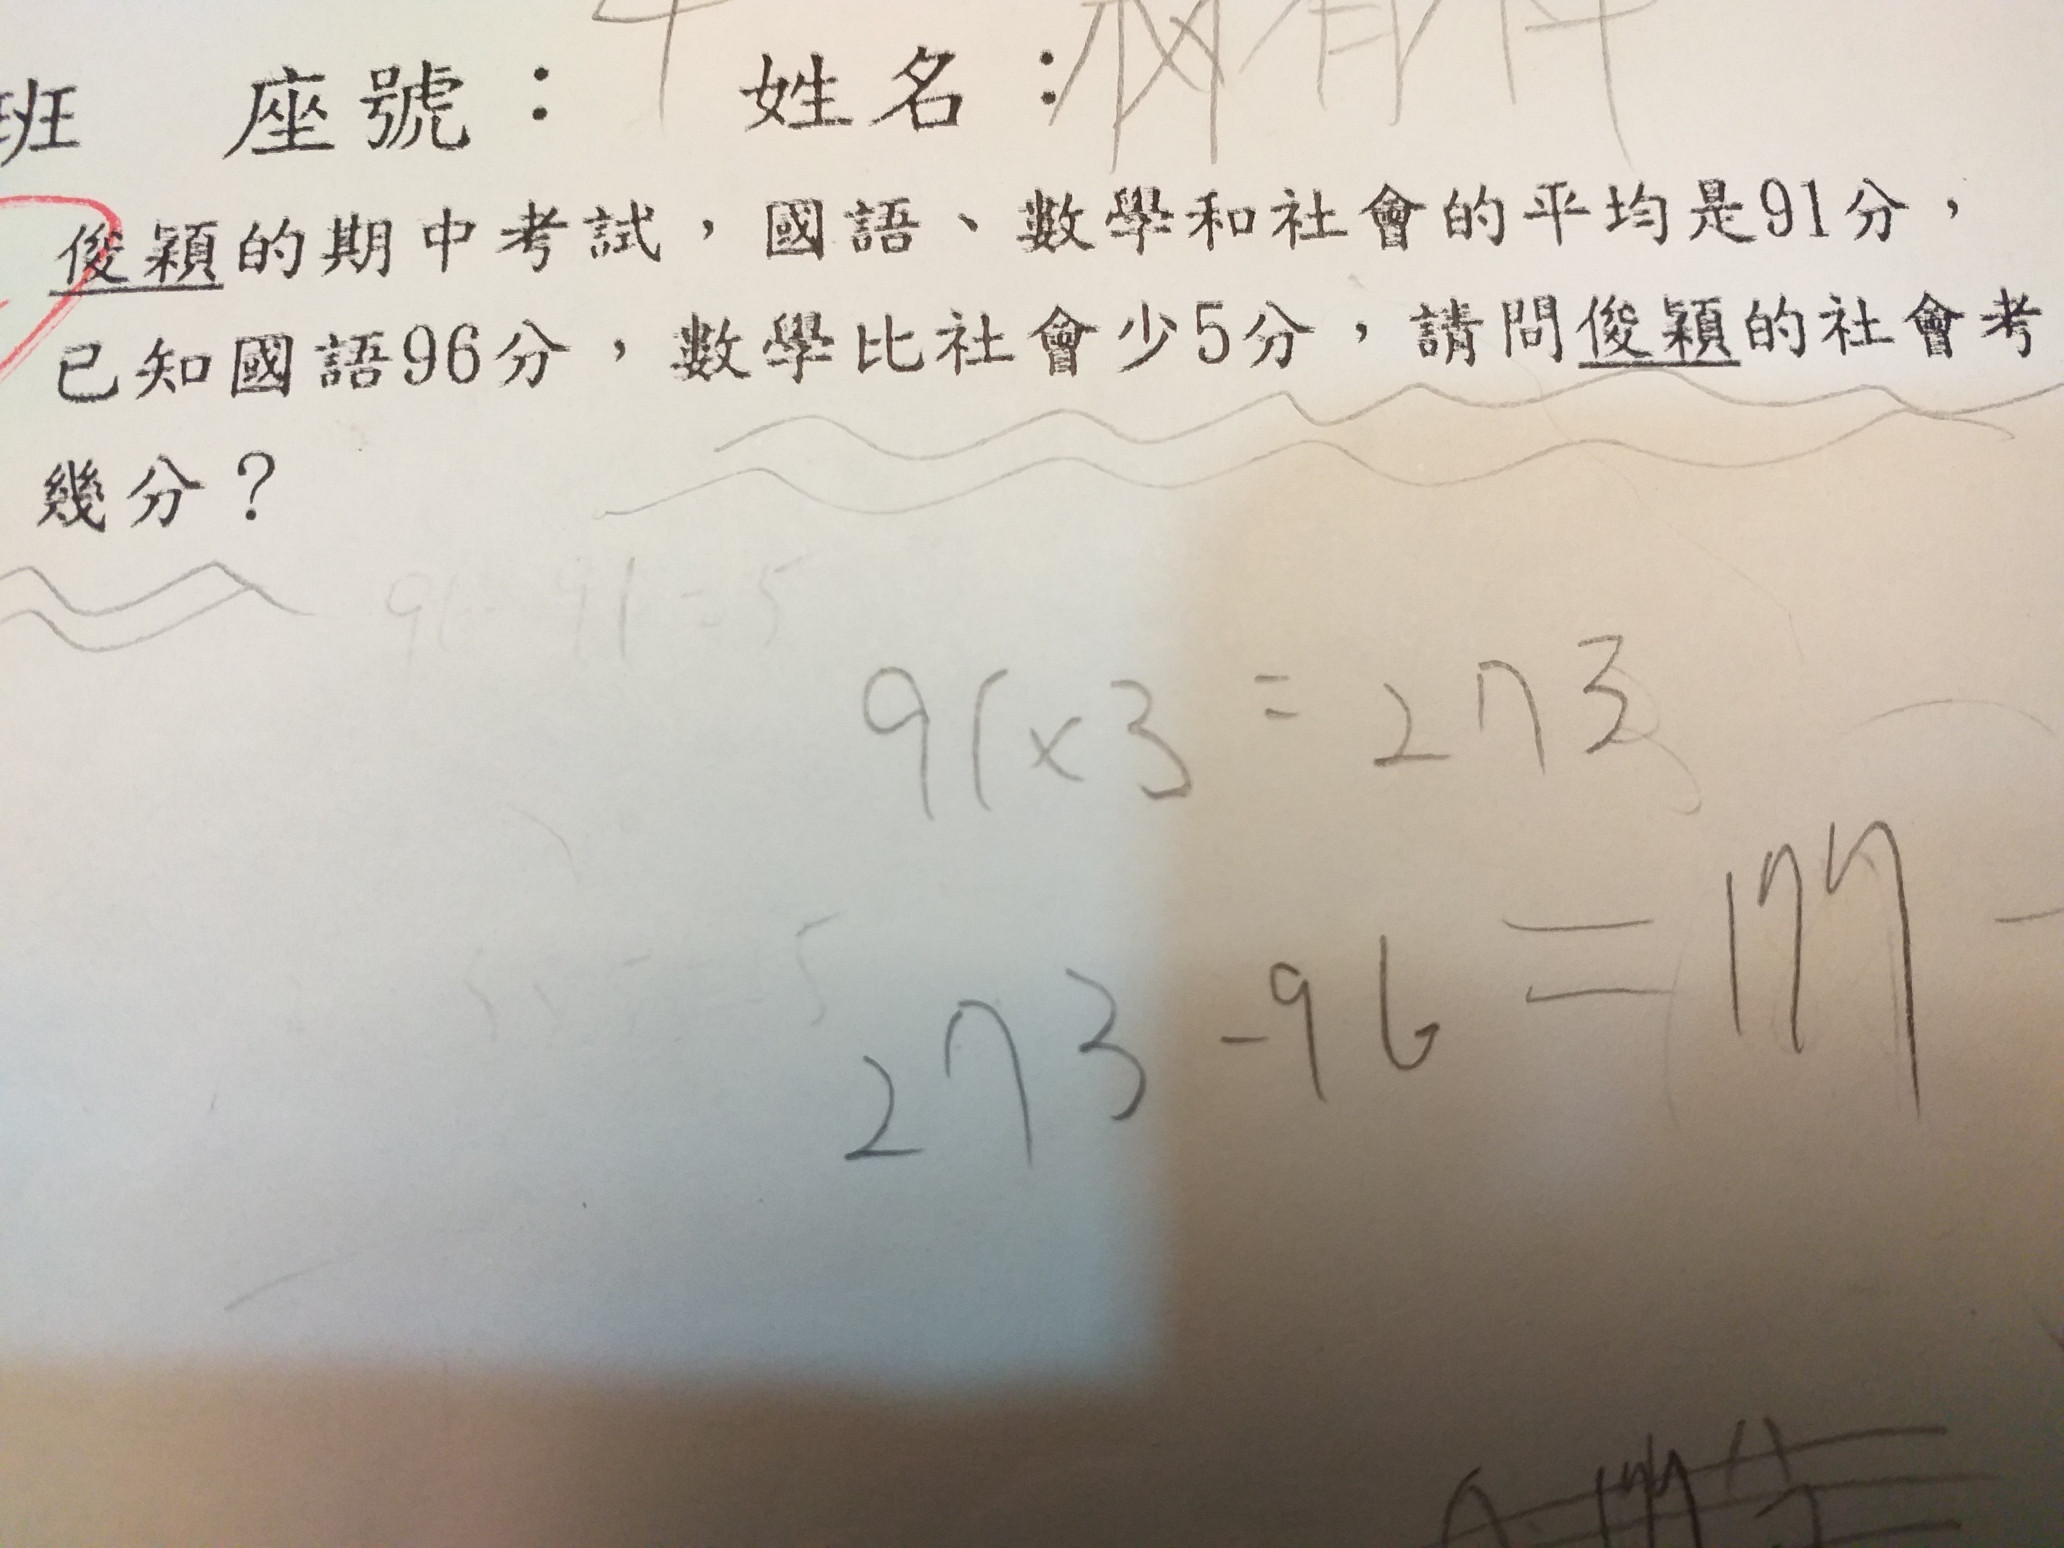 班 座號： 姓名：
俊穎的期中考試，國語、數學和社會的平均是91分，
已知國語96分，數學比社會少5分，請問俊穎的社會考
幾分？
96-91=5
91×3=273
273-96=177-